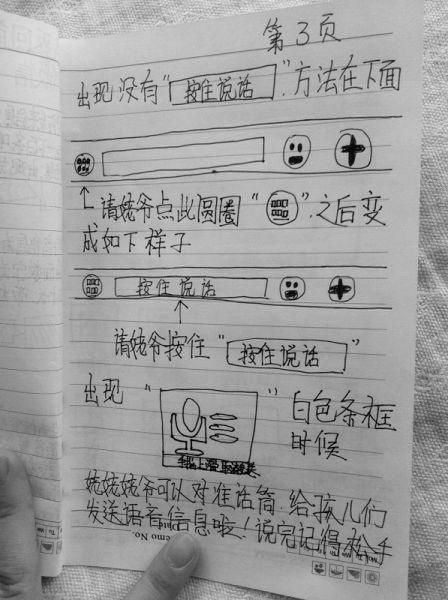 第3页
出现没有“按住说话”.方法在下面
请姥爷点此圆圈“ ”.之后变
成如下样子
按住说话
请姥爷按住“按住说话”
出现“ ”白色条框
时候
姥姥姥爷可以对准话筒.给孩儿们
发送语音信息啦！说完记得松手
emo No.